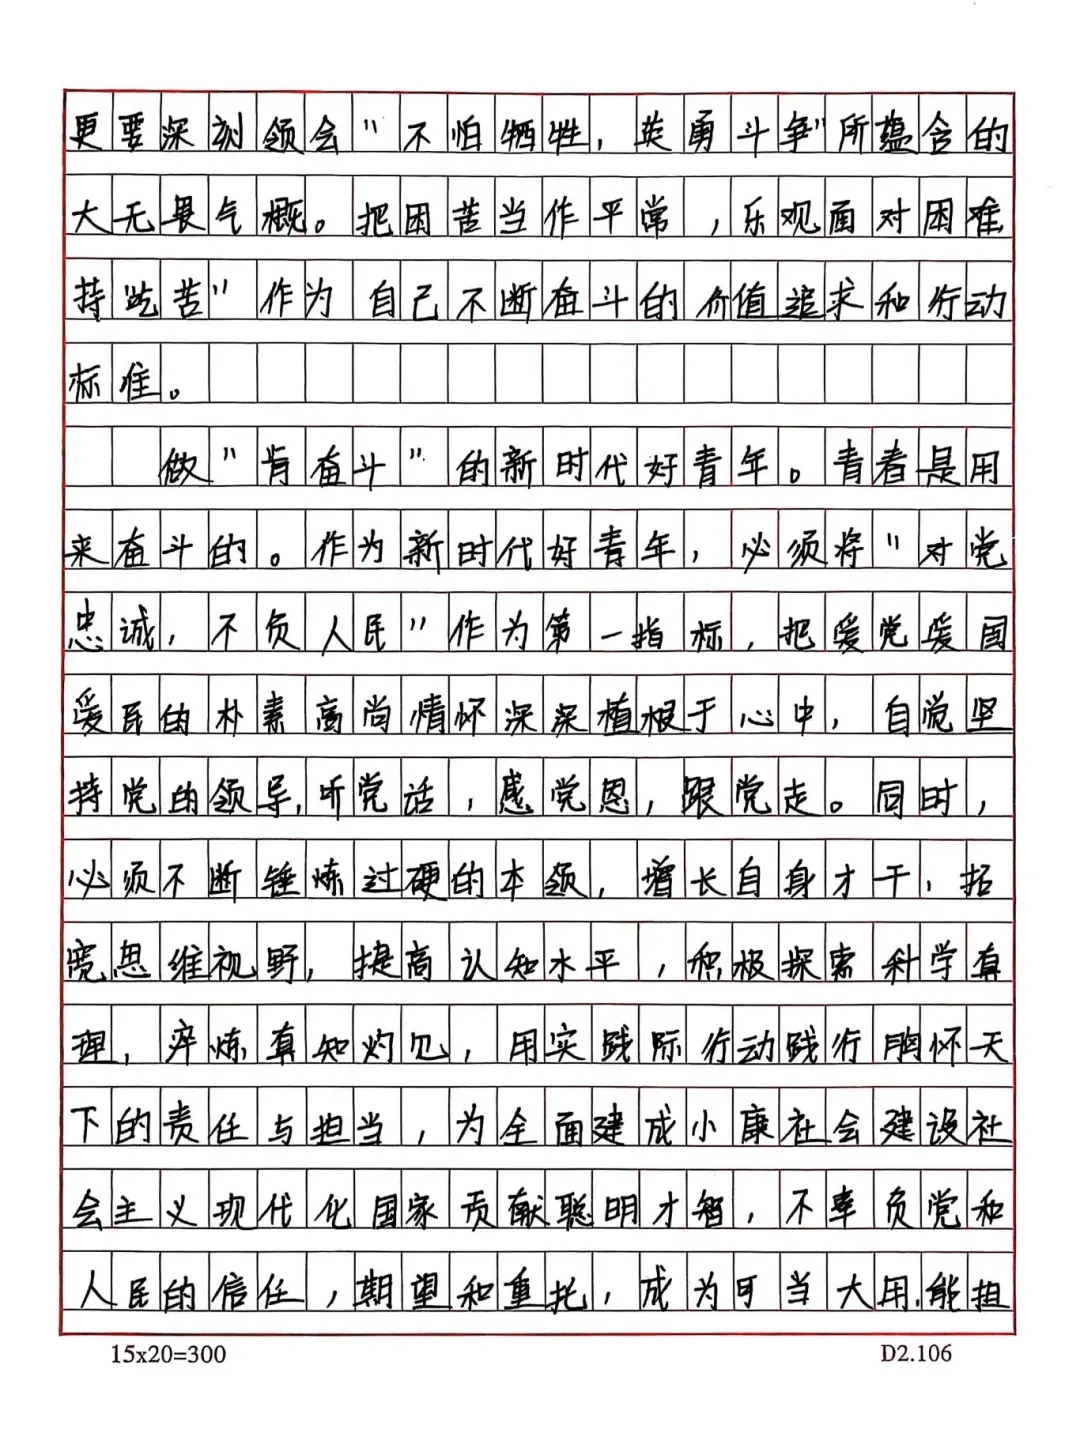 更要深刻领会"不怕牺牲,英勇斗争"所蕴含的
大无畏气概。把困苦当作平常,乐观面对困难
持"吃苦"作为自己不断奋斗的价值追求和行动
标准。
做"肯奋斗"的新时代好青年。青春是用
来奋斗的。作为新时代好青年,必须将"对党
忠诚,不负人民"作为第一指标,把爱党爱国
爱民的朴素高尚情怀深深植根于心中,自觉坚
持党的领导,听党话,感党恩,跟党走。同时,
必须不断锤炼过硬的本领,增长自身才干,拓
宽思维视野,提高认知水平,积极探索科学真
理,淬炼真知灼见,用实践际行动践行胸怀天
下的责任与担当,为全面建成小康社会建设社
会主义现代化国家贡献聪明才智,不辜负党和
人民的信任,期望和重托,成为可当大用、能担
15x20=300
D2.106